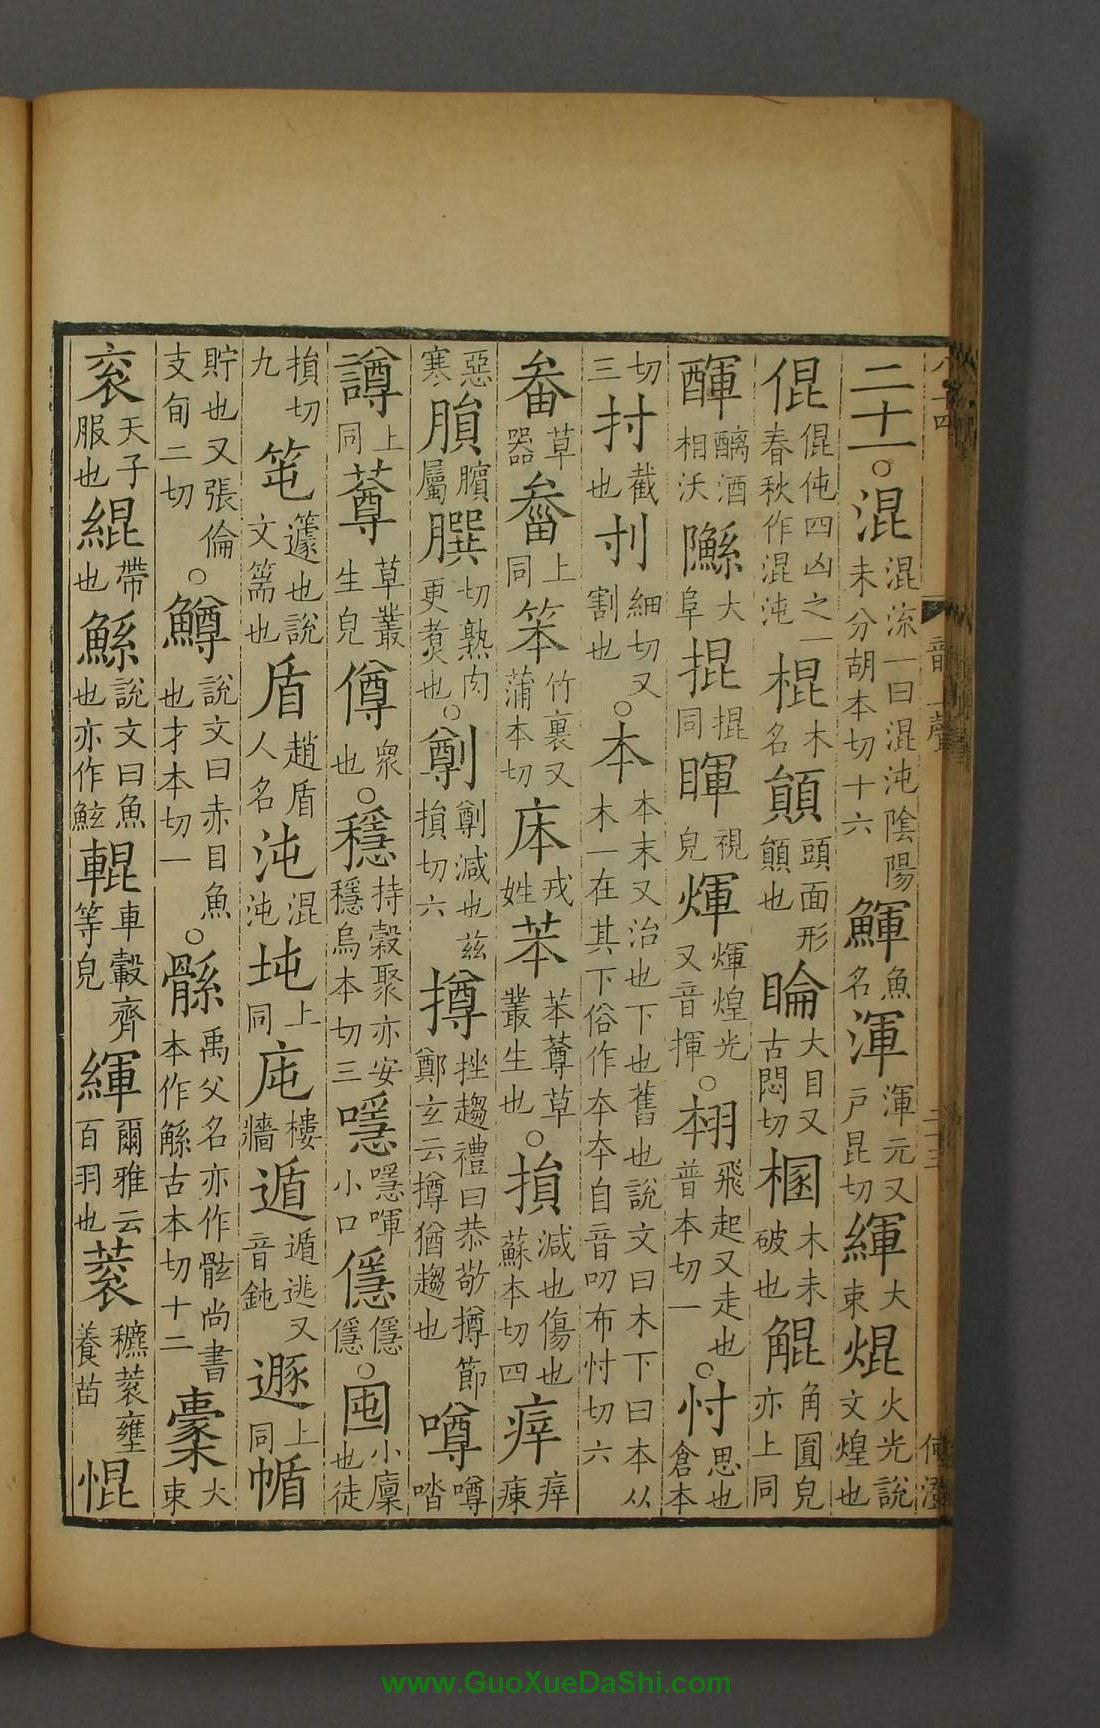 二十一○混混流一曰混沌陰陽未分胡本切十六鯶魚名渾渾元又戸昆切緷大束焜火光說文煌也
倱倱伅四凶之一春秋作混沌棍木名䫟頭面形䫟也睔大目又古悶切梱木未破也䚠角圓皃亦上同
䣺䤀酒相沃䧰大阜掍掍同睴視皃煇煇煌光又音揮○翉飛起又走也普本切一○忖思也倉本
切三刌截也刌細切又割也○本本末又治也下也舊也說文曰木下曰本从木一在其下俗作夲夲自音叨布忖切六
畚草器畚上同笨竹裏又蒲本切㡷戎姓苯苯䔿草叢生也○損減也傷也蘇本切四㾕㾕㾭
惡寒䐣臏屬䐪切熟肉更煑也○劕劕減也兹損切六撙挫趨禮曰恭敬撙節鄭玄云撙猶趨也噂噂㗳
譐上同䔿草叢生皃僔衆也○穩持穀聚亦安穩烏本切三㘟㘟喗小口㒚㒚㒚○囤小廩也徒
損切九笹籧也說文篅也盾趙盾人名沌混沌坉上同庉樓牆遁遁逃又音鈍遯上同㡒
貯也又張倫支旬二切○鱒說文曰赤目魚也才本切一○鯀禹父名亦作骸尚書本作鮌古本切十二橐大束
衮天子服也緄帶也鯀說文曰魚也亦作鮌輥車轂齊等皃緷爾雅云百羽也蔉穮蔉壅養苗惃
www.GuoXueDaShi.com